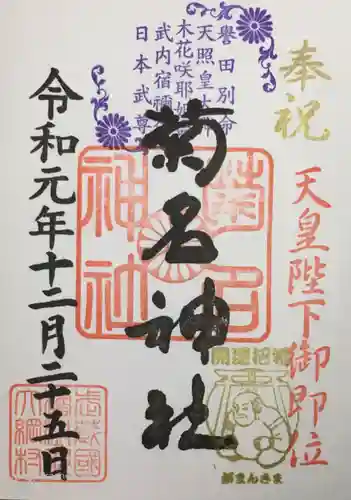 奉祝
天皇陛下御即位
譽田別命
天照皇大神
木花咲耶姫命
武内宿禰命
日本武尊
菊名神社
菊名神社
令和元年十二月二十五日
武蔵國
八綱村
がまんさま